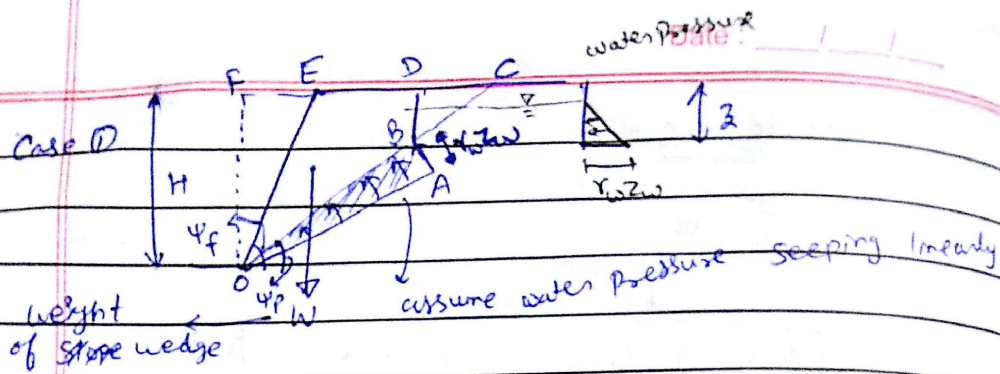 water pressure
Date : __/__/__
F E D C
Case ① B γwzw z
H A γwzw
ψf
O ψp W
assume water pressure seeping linearly
weight
of slope wedge